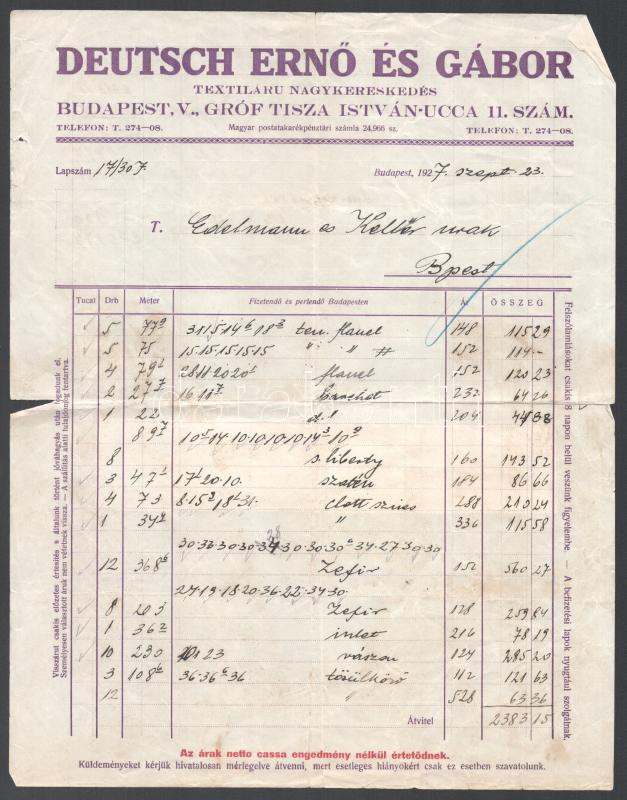 DEUTSCH ERNŐ ÉS GÁBOR
TEXTILÁRU NAGYKERESKEDÉS
BUDAPEST, V., GRÓF TISZA ISTVÁN-UCCA 11. SZÁM.
TELEFON: T. 274—08. Magyar postatakarékpénztári számla 24,966 sz. TELEFON: T. 274—08.
Lapszám 17/307. Budapest, 1927. szept. 23.
T. Edelmann és Keller urak
Bpest
Tucat Drb Méter Fizetendő és perlendő Budapesten Ár ÖSSZEG
5 77⁹ flanel 148 115 29
5 75 15.15.15.15.15 " " 152 114 -
4 79¹ 28 11 20 20¹ flanel 152 120 23
2 27⁷ 16 11⁷ 232 64 26
1 22 204 44 88
89⁷ 10 14.10.10.10.10.14 10
8 s. liberty 160 143 52
3 47¹ 17¹ 20.10. 184 86 66
4 73 8.15 18 31. clott szines 288 210 24
1 34² " 336 115 58
28
30.36.30.30.34.30.30.30⁶ 34.27.30.30
12 368⁶ Zefir 152 560 27
24.19.18.20.36.22.34.30.
8 203 Zefir 128 259 84
1 36² inlet 216 78 19
10 230 10/23 vászon 124 285 20
3 108⁶ 36.36⁶ 36 törülköző 112 121 63
12 " 528 63 36
Átvitel 2383 15
Visszárut csakis előzetes értesítés s általunk történt jóváhagyás után fogadunk el.
Személyesen választott áruk nem vétetnek vissza. — A szállítás alatti tulajdonjog fentartva.
Felszólamlásokat csakis 8 napon belül veszünk figyelembe. — A befizetési lapok nyugtául szolgálnak.
Az árak netto cassa engedmény nélkül értetődnek.
Küldeményeket kérjük hivatalosan mérlegelve átvenni, mert esetleges hiányokért csak ez esetben szavatolunk.